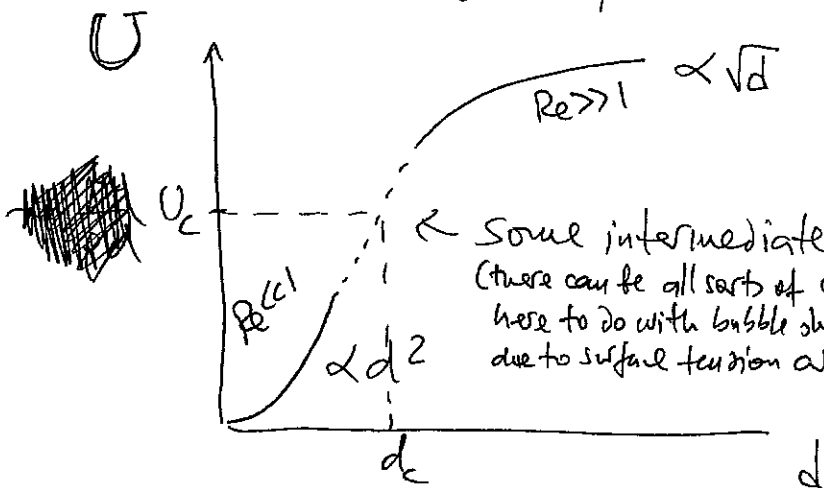 U
∝ √d
Re>>1
U_c
← Some intermediate
(there can be all sorts of
Re<<1
here to do with bubble
due to surface tension
∝ d²
d_c
d